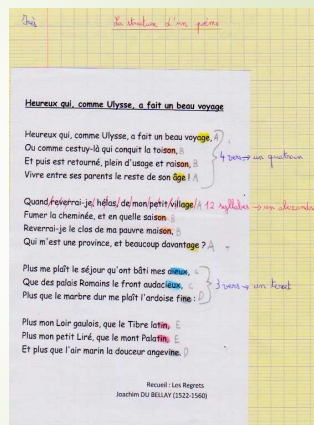 La structure d'un poème
Heureux qui, comme Ulysse, a fait un beau voyage
Heureux qui, comme Ulysse, a fait un beau voyage, A
Ou comme cestuy-là qui conquit la toison, B
Et puis est retourné, plein d'usage et raison, B
Vivre entre ses parents le reste de son âge ! A
4 vers → un quatrain
Quand/reverrai-je,/hélas,/de/mon/petit/village/A 12 syllabes → un alexandrin
Fumer la cheminée, et en quelle saison B
Reverrai-je le clos de ma pauvre maison, B
Qui m'est une province, et beaucoup davantage ? A
Plus me plaît le séjour qu'ont bâti mes aïeux, C
Que des palais Romains le front audacieux, C
Plus que le marbre dur me plaît l'ardoise fine : D
3 vers → un tercet
Plus mon Loir gaulois, que le Tibre latin, E
Plus mon petit Liré, que le mont Palatin, E
Et plus que l'air marin la douceur angevine. D
Recueil : Les Regrets
Joachim DU BELLAY (1522-1560)